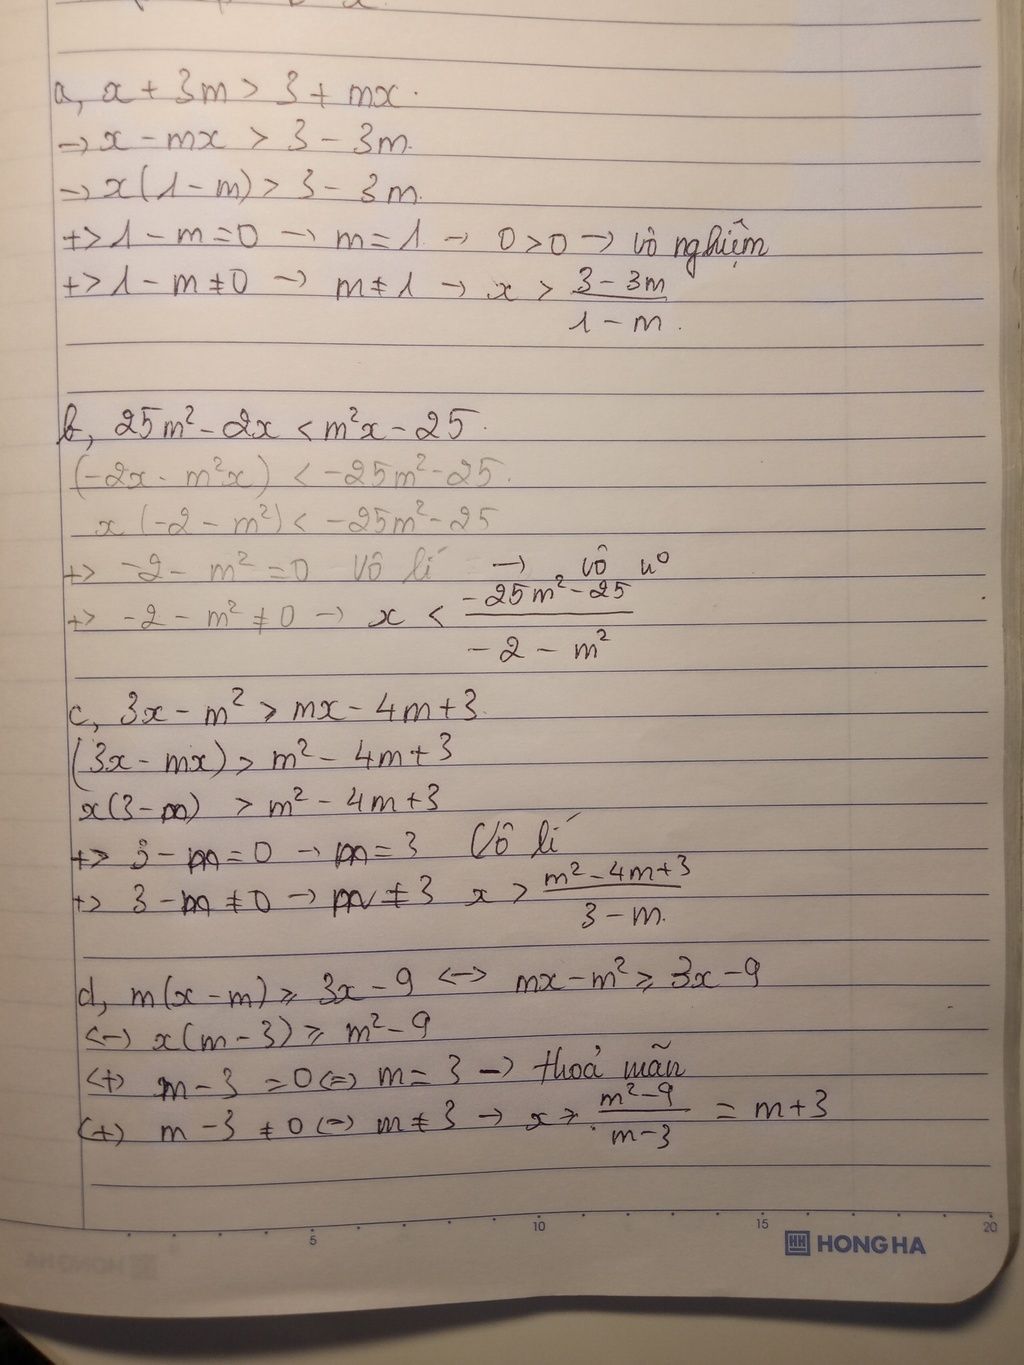 a, x + 3m > 3 + mx.
→ x - mx > 3 - 3m.
→ x(1 - m) > 3 - 3m.
+> 1 - m = 0 → m = 1. → 0 > 0 → vô nghiệm
+> 1 - m ≠ 0 → m ≠ 1 → x > (3 - 3m)/(1 - m).
b, 25m² - 2x < m²x - 25.
(-2x - m²x) < -25m² - 25.
x (-2 - m²) < -25m² - 25
+> -2 - m² = 0 Vô lí → vô n⁰
+> -2 - m² ≠ 0 → x < (-25m² - 25)/(-2 - m²)
c, 3x - m² > mx - 4m + 3.
(3x - mx) > m² - 4m + 3
x(3 - m) > m² - 4m + 3
+> 3 - m = 0 → m = 3 Vô lí
+> 3 - m ≠ 0 → m ≠ 3 x > (m² - 4m + 3)/(3 - m.)
d, m(x - m) ≥ 3x - 9 <-> mx - m² ≥ 3x - 9
<-> x(m - 3) ≥ m² - 9
<+> m - 3 = 0 <=> m = 3 → thoả mãn
(+) m - 3 ≠ 0 <=> m ≠ 3 → x ≥ (m² - 9)/(m - 3) = m + 3
5 10 15 20
HH HONG HA